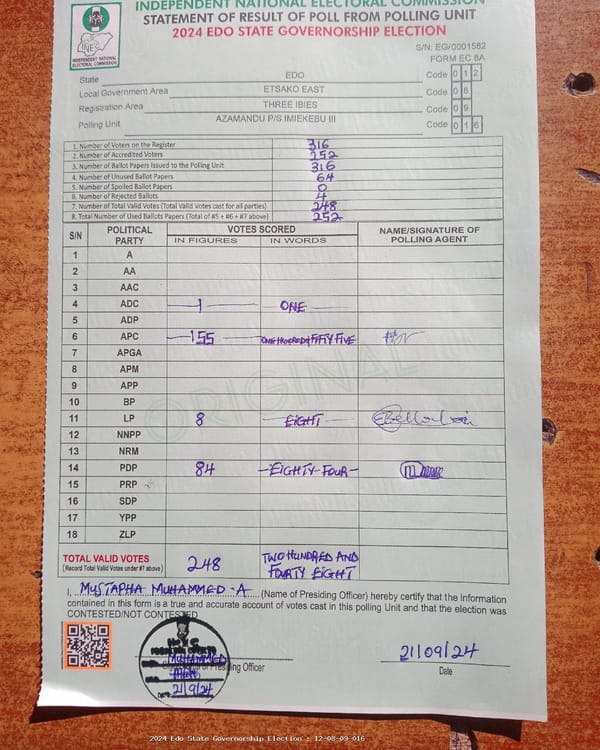 INDEPENDENT NATIONAL ELECTORAL COMMISSION
STATEMENT OF RESULT OF POLL FROM POLLING UNIT
2024 EDO STATE GOVERNORSHIP ELECTION
INEC
INDEPENDENT NATIONAL ELECTORAL COMMISSION
S/N: EG/0001582
FORM EC 8A
State EDO Code 0 1 2
Local Government Area ETSAKO EAST Code 0 8
Registration Area THREE IBIES Code 0 9
Polling Unit AZAMANDU P/S IMIEKEBU III Code 0 1 6
1. Number of Voters on the Register 316
2. Number of Accredited Voters 252
3. Number of Ballot Papers Issued to the Polling Unit 316
4. Number of Unused Ballot Papers 64
5. Number of Spoiled Ballot Papers 0
6. Number of Rejected Ballots 4
7. Number of Total Valid Votes (Total Valid Votes cast for all parties) 248
8. Total Number of Used Ballots Papers (Total of #5 + #6 + #7 above) 252
S/N POLITICAL PARTY VOTES SCORED NAME/SIGNATURE OF POLLING AGENT
IN FIGURES IN WORDS
1 A
2 AA
3 AAC
4 ADC 1 ONE
5 ADP
6 APC 155 ONE HUNDRED & FIFTY FIVE
7 APGA
8 APM
9 APP
10 BP
11 LP 8 EIGHT
12 NNPP
13 NRM
14 PDP 84 EIGHTY-FOUR
15 PRP
16 SDP
17 YPP
18 ZLP
ORIGINAL
TOTAL VALID VOTES 248 TWO HUNDRED AND FOURTY EIGHT
(Record Total Valid Votes under #7 above)
I, MUSTAPHA MUHAMMED - A (Name of Presiding Officer) hereby certify that the Information
contained in this form is a true and accurate account of votes cast in this polling Unit and that the election was
CONTESTED/NOT CONTESTED
MUHAMMED
21/9/24
Presiding Officer
21/09/24
Date
2024 Edo State Governorship Election : 12-08-09-016